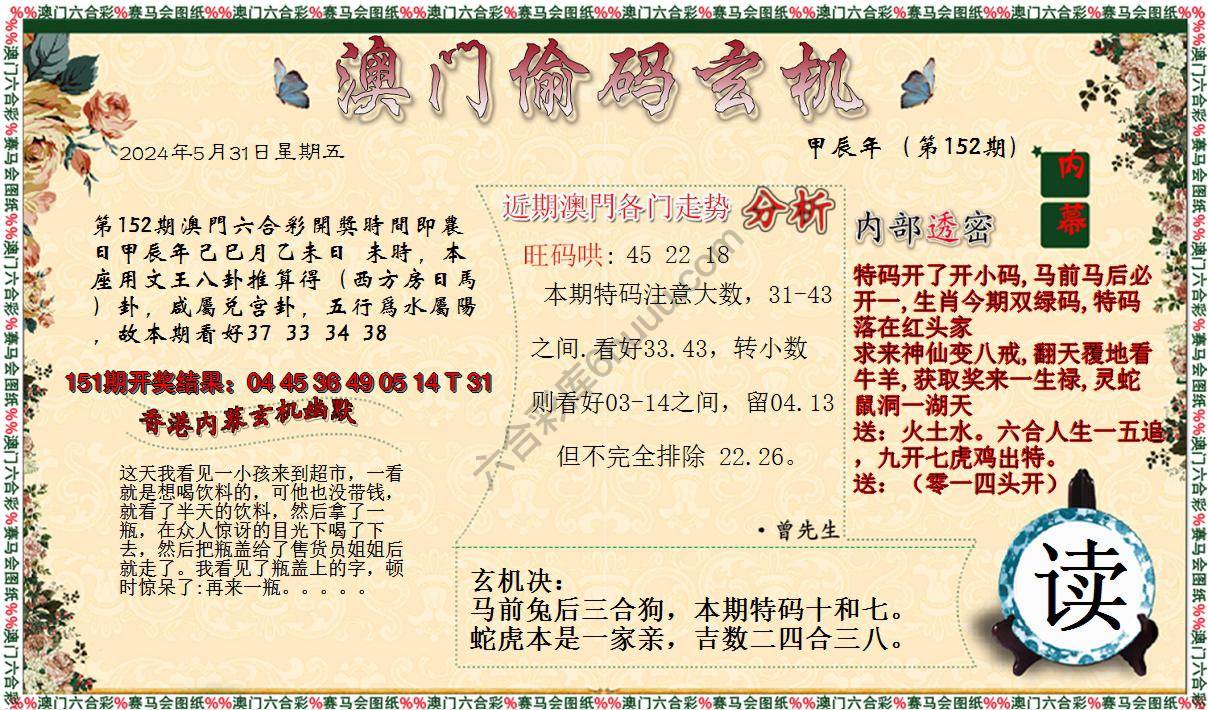 %%澳门六合彩%赛马会图纸%%澳门六合彩%赛马会图纸%%澳门六合彩%赛马会图纸%%澳门六合彩%赛马会图纸%%澳门六合彩%赛马会图纸%%澳门六合彩%赛马会图纸%%
澳门偷码玄机
2024年5月31日星期五
甲辰年（第152期）
内幕
第152期澳門六合彩開獎時間即農
日甲辰年己巳月乙未日 未時，本
座用文王八卦推算得（西方房日馬
）卦，咸屬兑宫卦，五行爲水屬陽
，故本期看好37 33 34 38
151期开奖结果：04 45 36 49 05 14 T 31
香港内幕玄机幽默
这天我看见一小孩来到超市，一看
就是想喝饮料的，可他也没带钱，
就看了半天的饮料，然后拿了一
瓶，在众人惊讶的目光下喝了下
去，然后把瓶盖给了售货员姐姐后
就走了。我看见了瓶盖上的字，顿
时惊呆了:再来一瓶。。。。。
近期澳門各门走势 分析
旺码哄: 45 22 18
本期特码注意大数，31-43
之间.看好33.43，转小数
则看好03-14之间，留04.13
但不完全排除 22.26。
·曾先生
内部透密
特码开了开小码,马前马后必
开一,生肖今期双绿码,特码
落在红头家
求来神仙变八戒,翻天覆地看
牛羊,获取奖来一生禄,灵蛇
鼠洞一湖天
送：火土水。六合人生一五追
，九开七虎鸡出特。
送：（零一四头开）
玄机决：
马前兔后三合狗，本期特码十和七。
蛇虎本是一家亲，吉数二四合三八。
读
%%澳门六合彩%赛马会图纸%%澳门六合彩%赛马会图纸%%澳门六合彩%赛马会图纸%%澳门六合彩%赛马会图纸%%澳门六合彩%赛马会图纸%%澳门六合彩%赛马会图纸%%